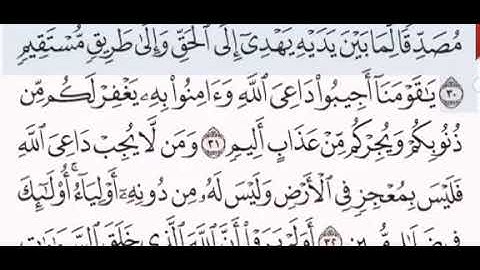 مُصَدِّقًا لِّمَا بَيْنَ يَدَيْهِ يَهْدِىٓ إِلَى ٱلْحَقِّ وَإِلَىٰ طَرِيقٍ مُّسْتَقِيمٍ
٣٠ يَٰقَوْمَنَآ أَجِيبُوا۟ دَاعِىَ ٱللَّهِ وَءَامِنُوا۟ بِهِۦ يَغْفِرْ لَكُم مِّن
ذُنُوبِكُمْ وَيُجِرْكُم مِّنْ عَذَابٍ أَلِيمٍ ٣١ وَمَن لَّا يُجِبْ دَاعِىَ ٱللَّهِ
فَلَيْسَ بِمُعْجِزٍ فِى ٱلْأَرْضِ وَلَيْسَ لَهُۥ مِن دُونِهِۦٓ أَوْلِيَآءُ ۚ أُو۟لَٰٓئِكَ
فِى ضَلَٰلٍ مُّبِينٍ ٣٢ أَوَلَمْ يَرَوْا۟ أَنَّ ٱللَّهَ ٱلَّذِى خَلَقَ ٱلسَّمَٰوَٰتِ